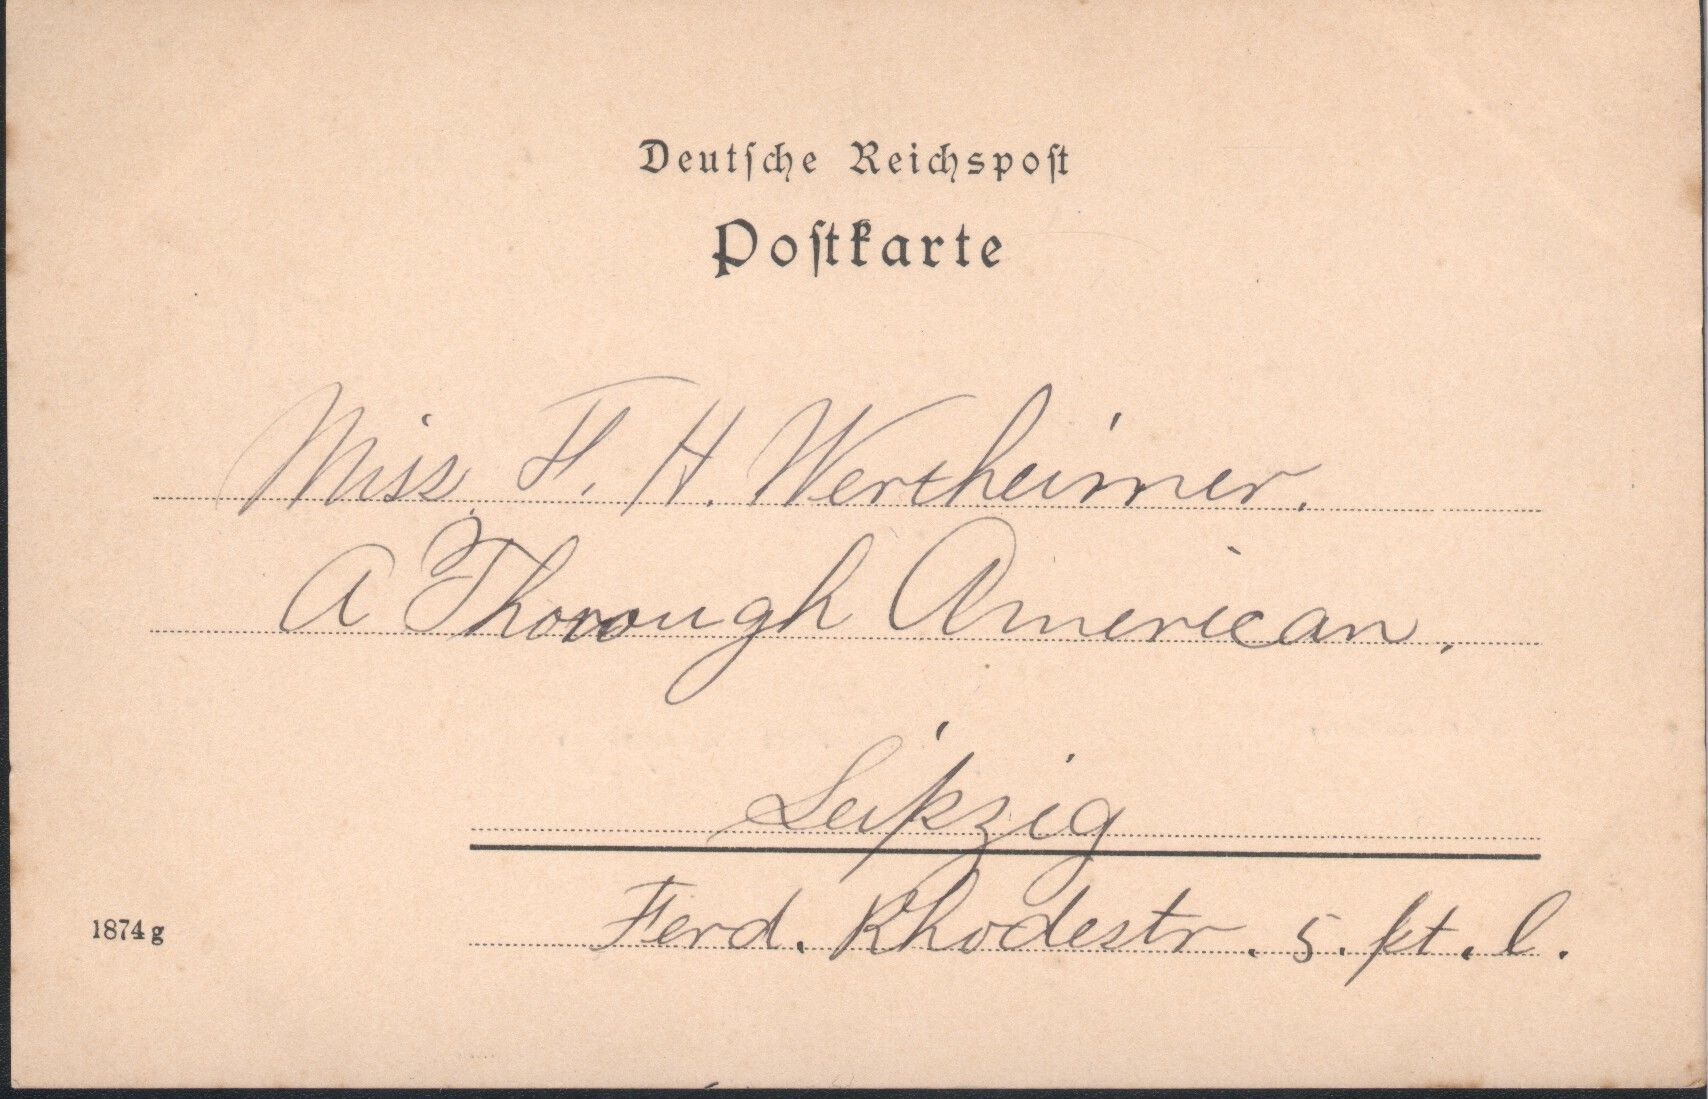 Deutſche Reichspoſt
Poſtkarte
Miss F. H. Wertheimer.
A Thorough American.
Leipzig
Ferd. Rhodestr. 5. pt. l.
1874 g